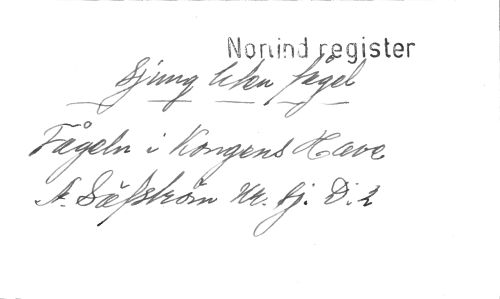 Norrind register
Sjung liten fågel
Fågeln i Kongens Have
A. Säfström Hk. Sj. D. 2